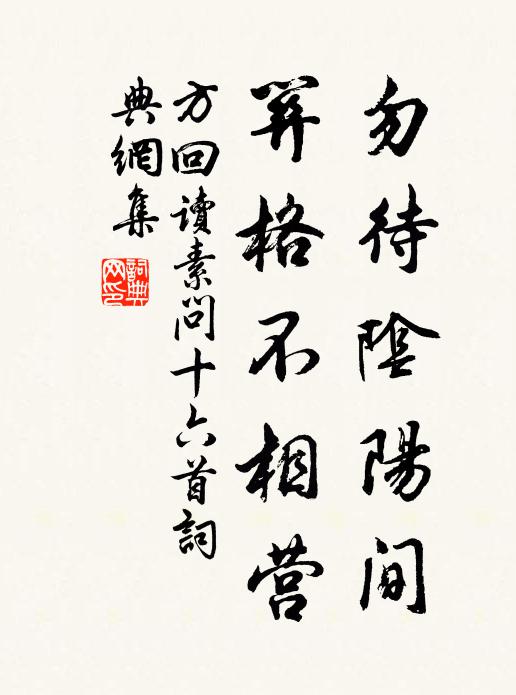 勿待陰陽間
關格不相营
方回讀素問十六首詞
典網集
詞典
网印